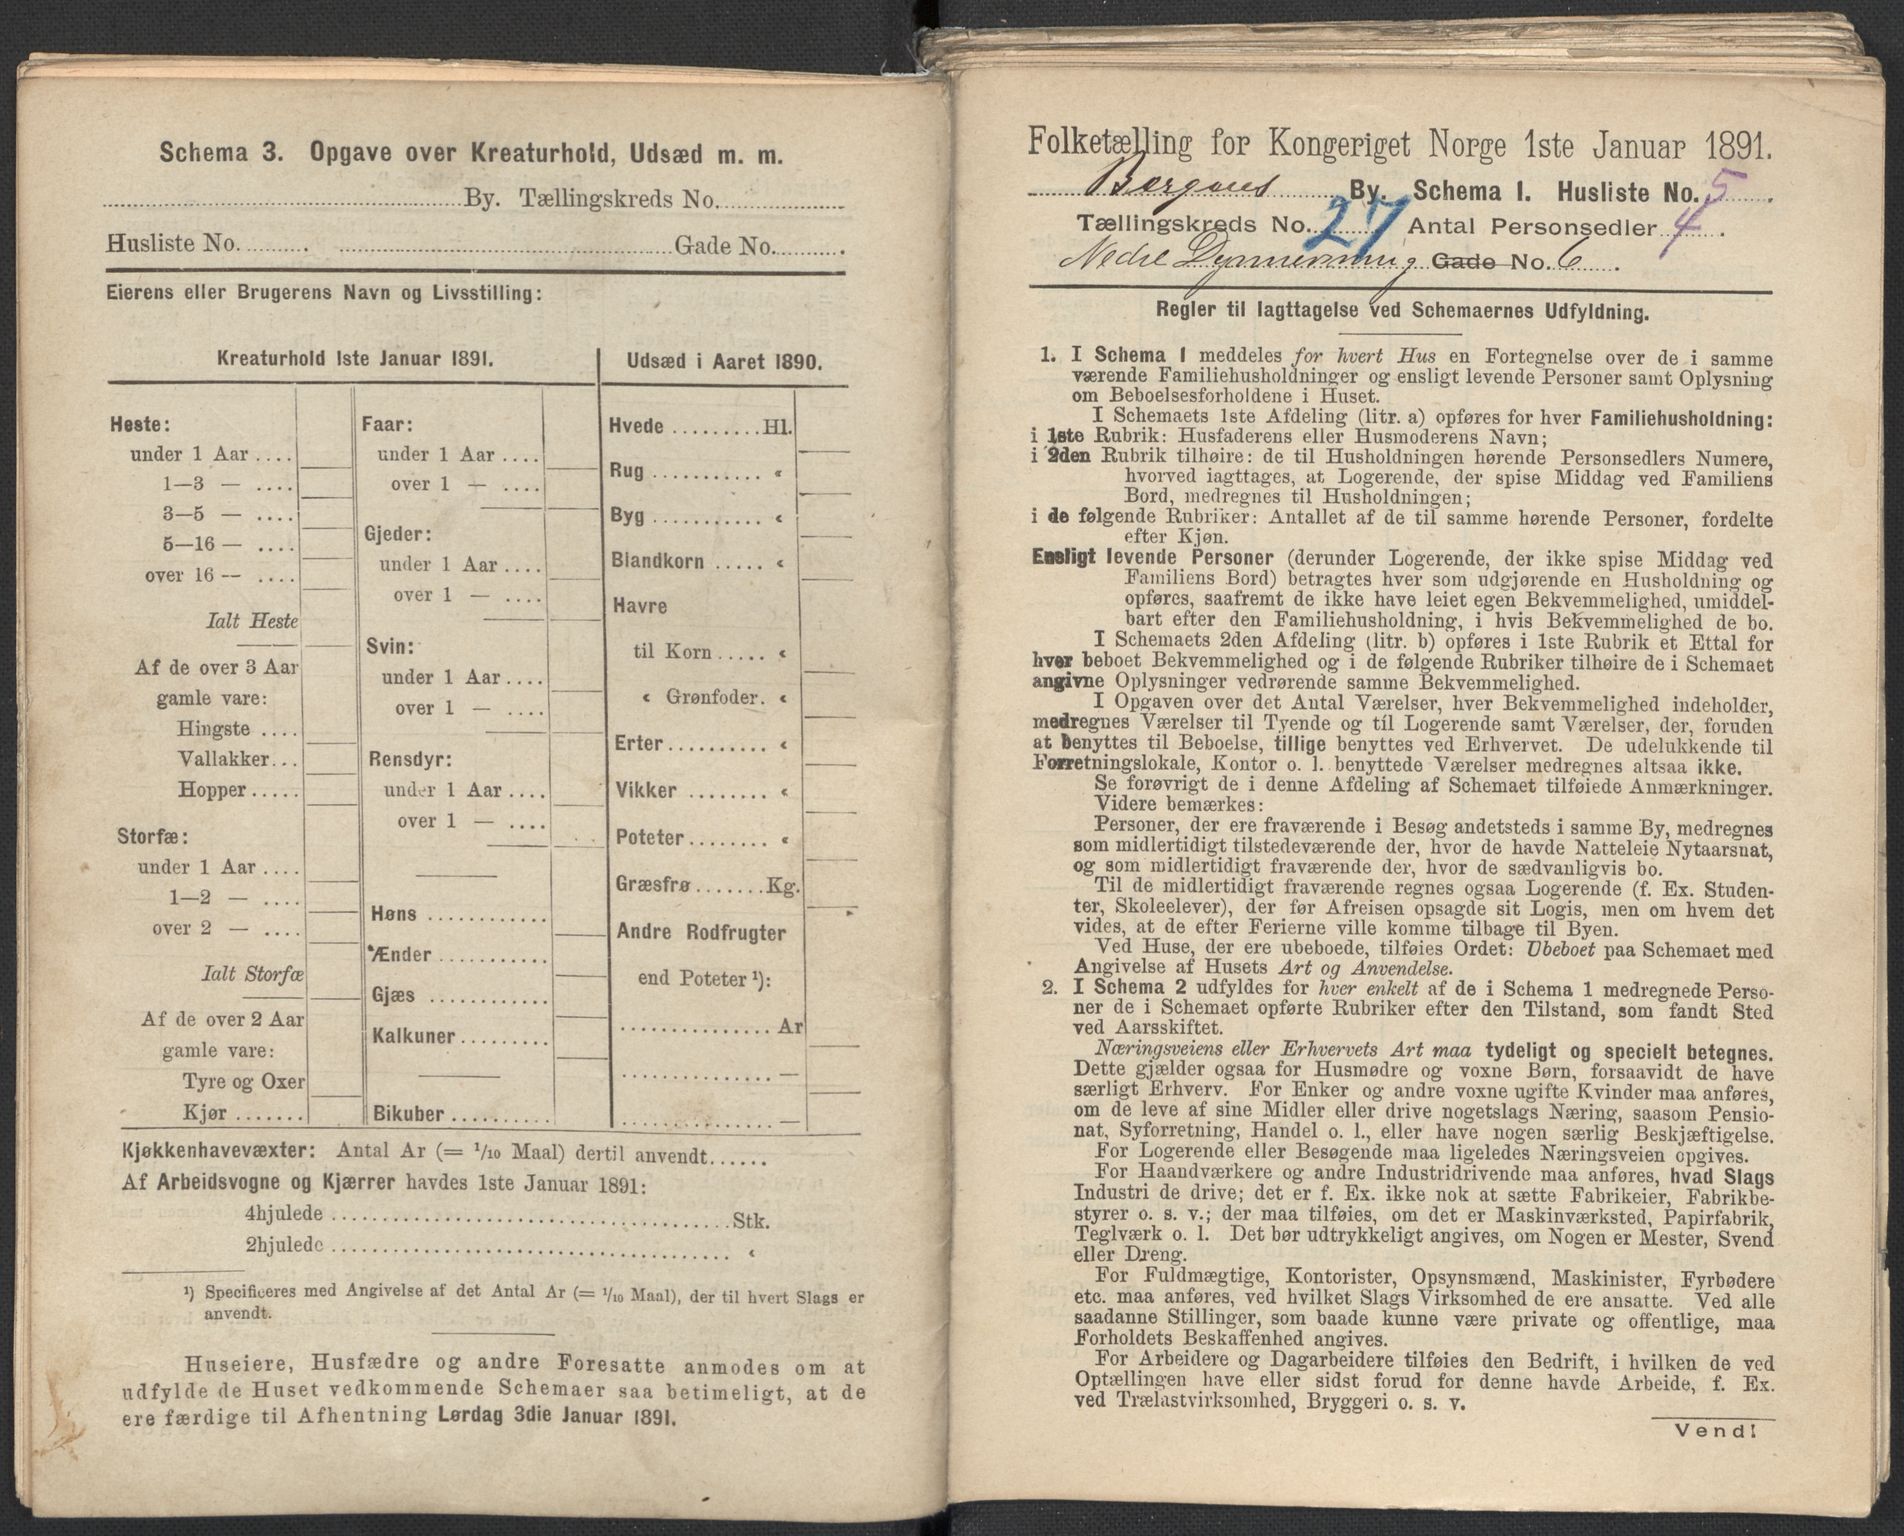 Schema 3. Opgave over Kreaturhold, Udsæd m. m.
By. Tællingskreds No.
Husliste No. Gade No.
Eierens eller Brugerens Navn og Livsstilling:
Kreaturhold 1ste Januar 1891.
Heste:
under 1 Aar ....
1—3 — ....
3—5 — ....
5—16 — ....
over 16 — ....
Ialt Heste
Af de over 3 Aar
gamle vare:
Hingste ....
Vallakker...
Hopper.....
Storfæ:
under 1 Aar ....
1—2 — ....
over 2 — ....
Ialt Storfæ
Af de over 2 Aar
gamle vare:
Tyre og Oxer
Kjør .......
Faar:
under 1 Aar ....
over 1 — ....
Gjeder:
under 1 Aar ....
over 1 — ....
Svin:
under 1 Aar ....
over 1 — ....
Rensdyr:
under 1 Aar ....
over 1 — ....
Høns ............
Ænder ...........
Gjæs ............
Kalkuner.........
Bikuber ..........
Udsæd i Aaret 1890.
Hvede .........Hl.
Rug ........... «
Byg ........... «
Blandkorn ..... «
Havre
til Korn ..... «
« Grønfoder. «
Erter.......... «
Vikker ........ «
Poteter........ «
Græsfrø.......Kg.
Andre Rodfrugter
end Poteter ¹):
............... Ar
............... —
............... —
Kjøkkenhavevæxter: Antal Ar (= 1/10 Maal) dertil anvendt......
Af Arbeidsvogne og Kjærrer havdes 1ste Januar 1891:
4hjulede ........................................Stk.
2hjulede ........................................ «
¹) Specificeres med Angivelse af det Antal Ar (= 1/10 Maal), der til hvert Slags er
anvendt.
Huseiere, Husfædre og andre Foresatte anmodes om at
udfylde de Huset vedkommende Schemaer saa betimeligt, at de
ere færdige til Afhentning Lørdag 3die Januar 1891.
Folketælling for Kongeriget Norge 1ste Januar 1891.
Bergens By. Schema 1. Husliste No. 5
Tællingskreds No. 27 Antal Personsedler 4
Nedre Gade No. 6
Regler til Iagttagelse ved Schemaernes Udfyldning.
1. I Schema 1 meddeles for hvert Hus en Fortegnelse over de i samme
værende Familiehusholdninger og ensligt levende Personer samt Oplysning
om Beboelsesforholdene i Huset.
I Schemaets 1ste Afdeling (litr. a) opføres for hver Familiehusholdning:
i 1ste Rubrik: Husfaderens eller Husmoderens Navn;
i 2den Rubrik tilhøire: de til Husholdningen hørende Personsedlers Numere,
hvorved iagttages, at Logerende, der spise Middag ved Familiens
Bord, medregnes til Husholdningen;
i de følgende Rubriker: Antallet af de til samme hørende Personer, fordelte
efter Kjøn.
Ensligt levende Personer (derunder Logerende, der ikke spise Middag ved
Familiens Bord) betragtes hver som udgjørende en Husholdning og
opføres, saafremt de ikke have leiet egen Bekvemmelighed, umiddel-
bart efter den Familiehusholdning, i hvis Bekvemmelighed de bo.
I Schemaets 2den Afdeling (litr. b) opføres i 1ste Rubrik et Ettal for
hver beboet Bekvemmelighed og i de følgende Rubriker tilhøire de i Schemaet
angivne Oplysninger vedrørende samme Bekvemmelighed.
I Opgaven over det Antal Værelser, hver Bekvemmelighed indeholder,
medregnes Værelser til Tyende og til Logerende samt Værelser, der, foruden
at benyttes til Beboelse, tillige benyttes ved Erhvervet. De udelukkende til
Forretningslokale, Kontor o. l. benyttede Værelser medregnes altsaa ikke.
Se forøvrigt de i denne Afdeling af Schemaet tilføiede Anmærkninger.
Videre bemærkes:
Personer, der ere fraværende i Besøg andetsteds i samme By, medregnes
som midlertidigt tilstedeværende der, hvor de havde Natteleie Nytaarsnat,
og som midlertidigt fraværende der, hvor de sædvanligvis bo.
Til de midlertidigt fraværende regnes ogsaa Logerende (f. Ex. Studen-
ter, Skoleelever), der før Afreisen opsagde sit Logis, men om hvem det
vides, at de efter Ferierne ville komme tilbage til Byen.
Ved Huse, der ere ubeboede, tilføies Ordet: Ubeboet paa Schemaet med
Angivelse af Husets Art og Anvendelse.
2. I Schema 2 udfyldes for hver enkelt af de i Schema 1 medregnede Perso-
ner de i Schemaet opførte Rubriker efter den Tilstand, som fandt Sted
ved Aarsskiftet.
Næringsveiens eller Erhvervets Art maa tydeligt og specielt betegnes.
Dette gjælder ogsaa for Husmødre og voxne Børn, forsaavidt de have
særligt Erhverv. For Enker og andre voxne ugifte Kvinder maa anføres,
om de leve af sine Midler eller drive nogetslags Næring, saasom Pensio-
nat, Syforretning, Handel o. l., eller have nogen særlig Beskjæftigelse.
For Logerende eller Besøgende maa ligeledes Næringsveien opgives.
For Haandværkere og andre Industridrivende maa anføres, hvad Slags
Industri de drive; det er f. Ex. ikke nok at sætte Fabrikeier, Fabrikbe-
styrer o. s. v.; der maa tilføies, om det er Maskinværksted, Papirfabrik,
Teglværk o. l. Det bør udtrykkeligt angives, om Nogen er Mester, Svend
eller Dreng.
For Fuldmægtige, Kontorister, Opsynsmænd, Maskinister, Fyrbødere
etc. maa anføres, ved hvilket Slags Virksomhed de ere ansatte. Ved alle
saadanne Stillinger, som baade kunne være private og offentlige, maa
Forholdets Beskaffenhed angives.
For Arbeidere og Dagarbeidere tilføies den Bedrift, i hvilken de ved
Optællingen have eller sidst forud for denne havde Arbeide, f. Ex.
ved Trælastvirksomhed, Bryggeri o. s. v.
Vend!